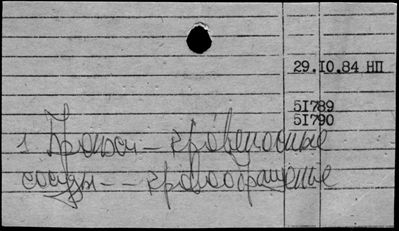 29.10.84 НП
51789
51790
1 Кровь - кровеносные
сосуды - - кровообращение